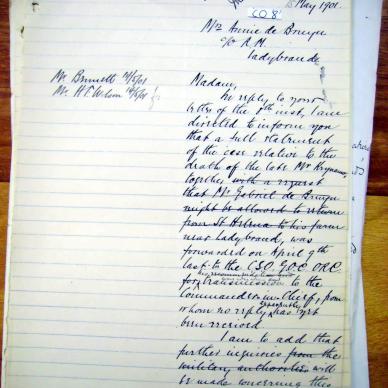 15 May 1901.
CO 8
Mrs Annie de Bruyn
c/o R.M.
Ladybrande
Mr Brunett
Mr H.F. Wilson
Madam,
In reply to your
letter of the 7th inst, I am
directed to inform you
that a full statement
of the case relative to the
death of the late Mr
together with a request
that Mr Gabriel de Bruyn
might be allowed to return
from St Helena to his farm
near Ladybrand, was
forwarded on April 9th
last to the C.S.O. G.O.C. O.R.C.
for transmission to the
Commander in Chief, from
whom no reply has yet
been received.
I am to add that
further inquiries from the
military authorities will
be made concerning this